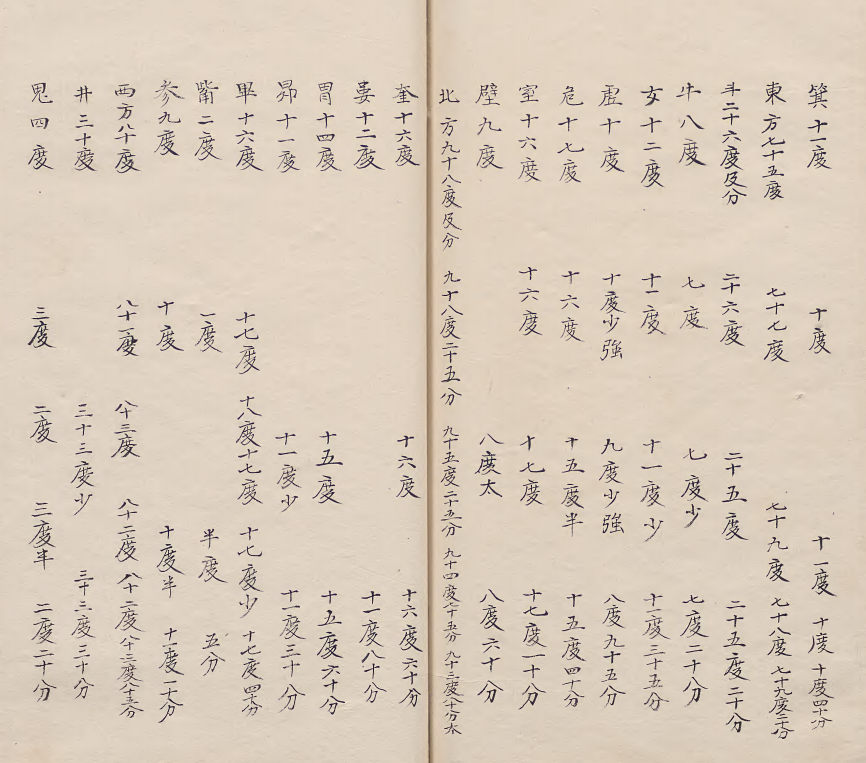 箕十一度 十度 十一度 十度 十度四十分
東方七十五度 七十七度 七十九度 七十八度 七十九度二十分
斗二十六度及分 二十六度 二十五度 二十五度二十分
牛八度 七度 七度少 七度二十分
女十二度 十一度 十一度少 十一度三十五分
虚十度 十度少強 九度少強 八度九十五分
危十七度 十六度 十五度半 十五度四十分
室十六度 十六度 十七度 十七度一十分
壁九度 八度太 八度六十分
北方九十八度及分 九十八度二十五分 九十五度二十五分 九十四度七十五分 九十三度八十分太
奎十六度 十六度 十六度六十分
婁十二度 十一度八十分
胃十四度 十五度 十五度六十分
昴十一度 十一度少 十一度三十分
畢十六度 十七度 十八度十七度 十七度少 十七度四十分
觜二度 一度 半度 五分
参九度 十度 十度半 十一度一十分
西方八十度 八十一度 八十三度 八十二度 八十二度 八十三度八十五分
井三十度 三十三度少 三十三度三十分
鬼四度 三度 二度 三度半 二度二十分